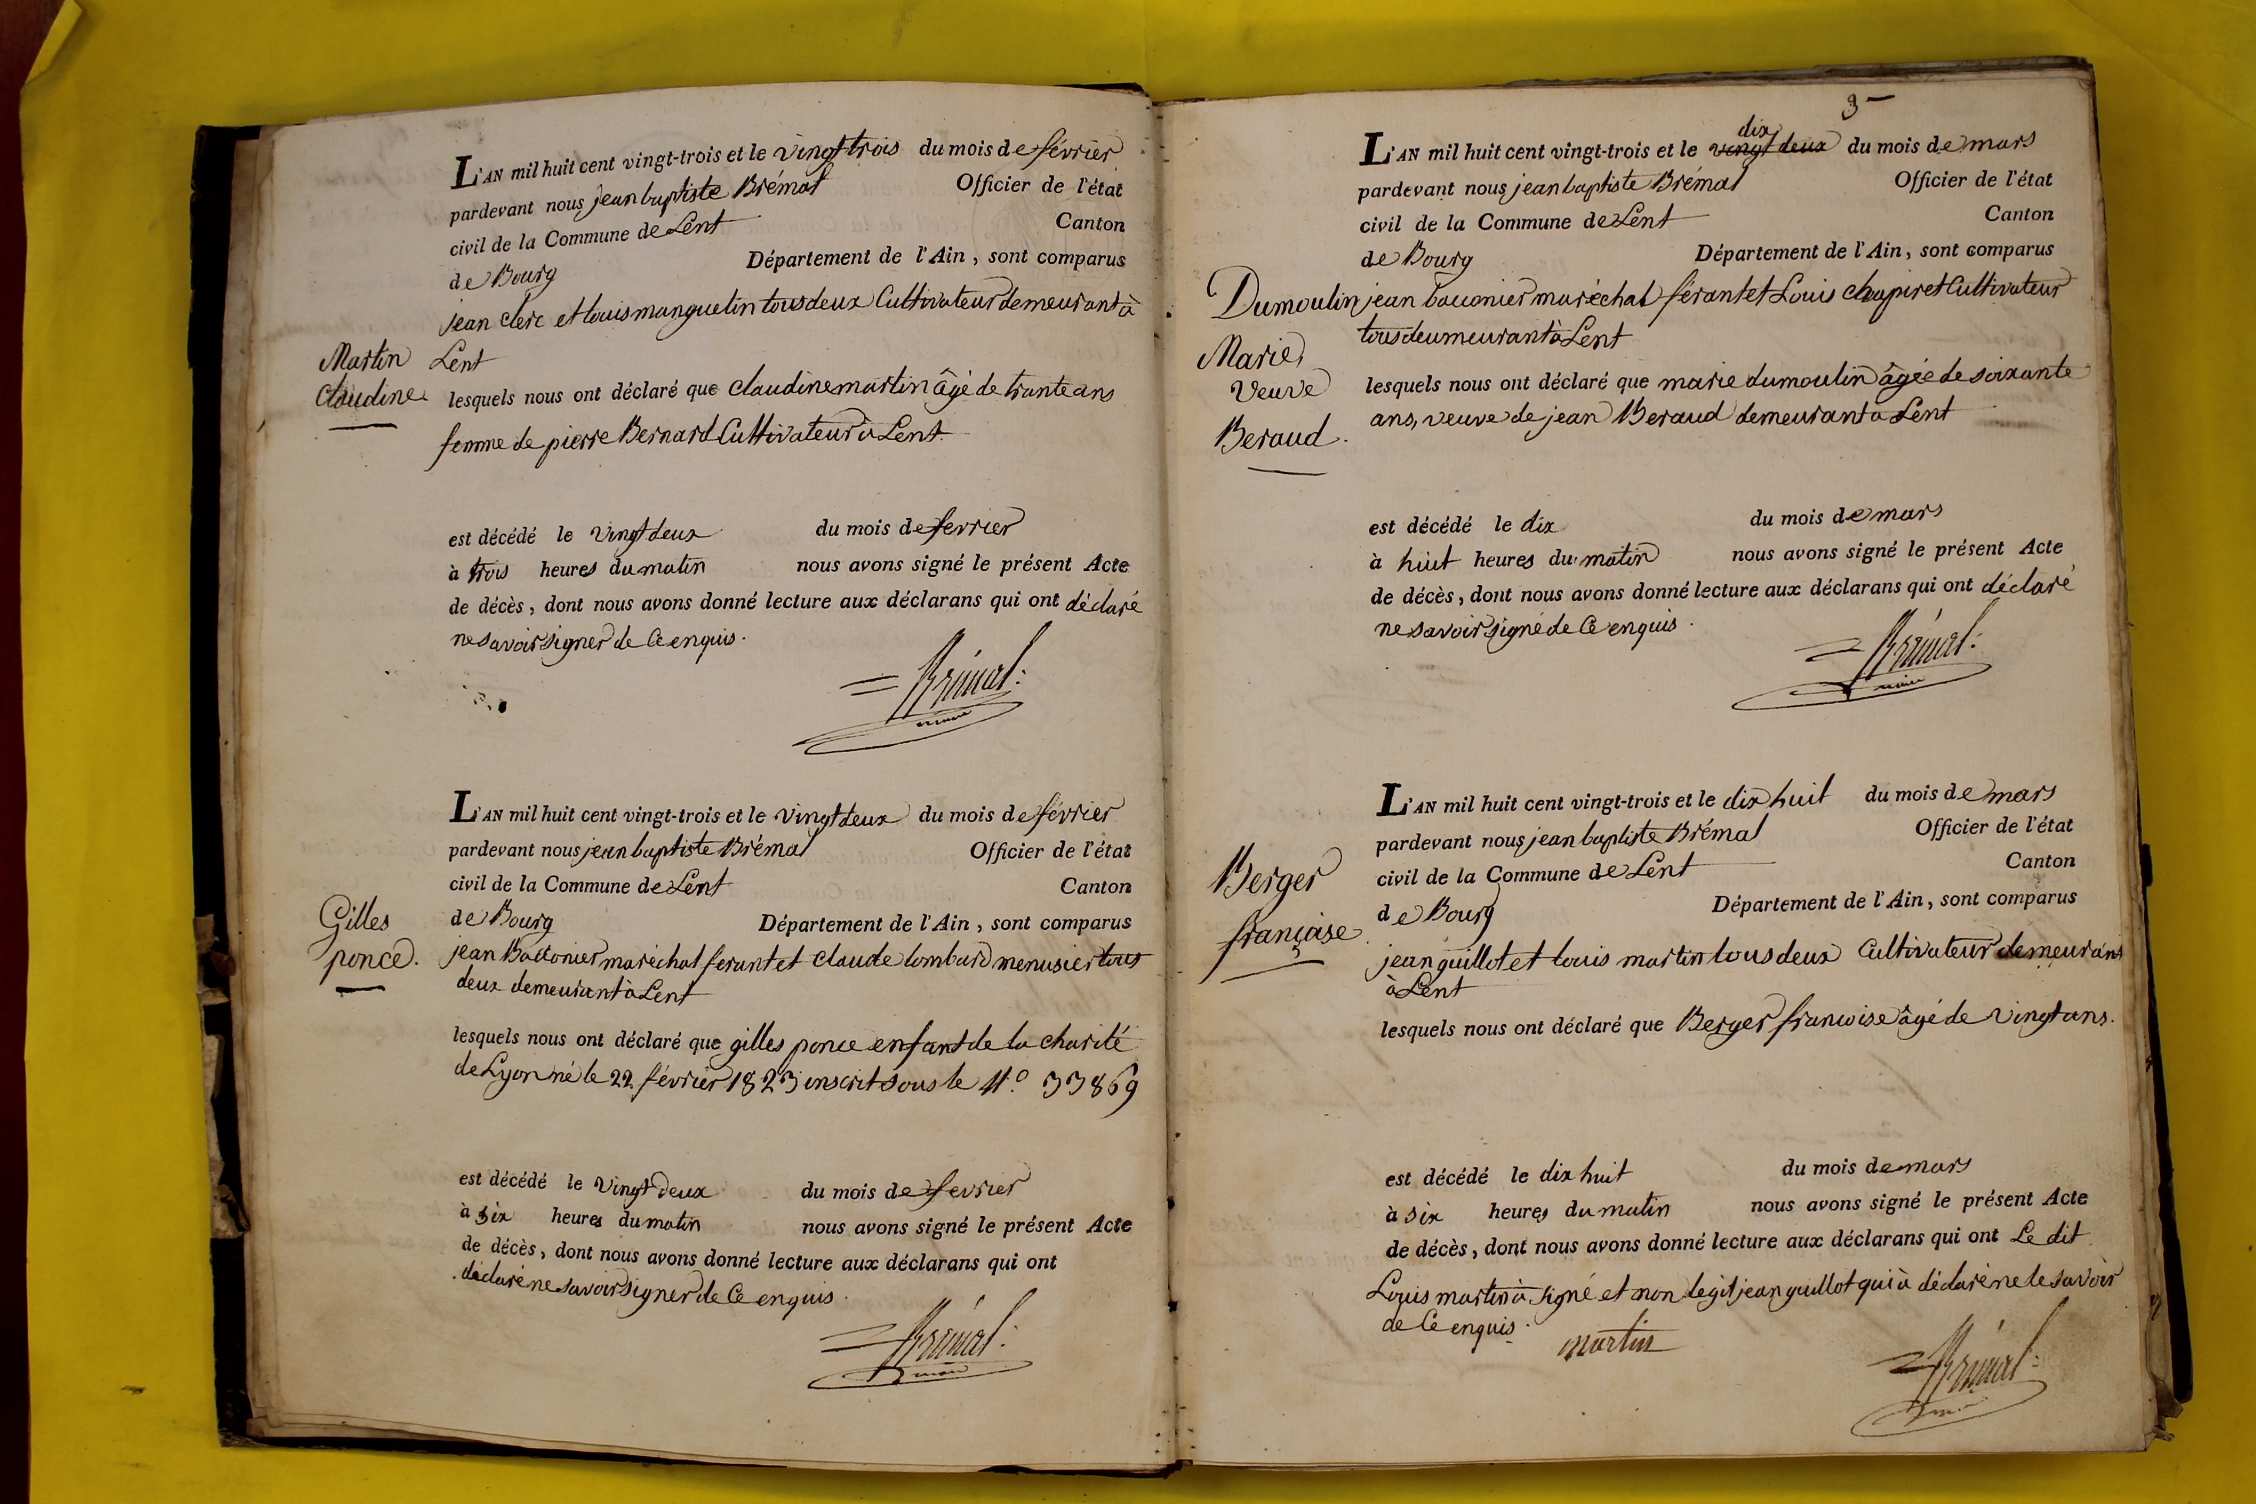 L'AN mil huit cent vingt-trois et le vingt trois du mois de février
pardevant nous jean baptiste Brémal Officier de l'état
civil de la Commune de Lent Canton
de Bourg Département de l'Ain, sont comparus
jean Clerc et louis manguelin tous deux Cultivateur demeurant à
Lent
Martin
Claudine
lesquels nous ont déclaré que Claudine martin âgé de trante ans
femme de pierre Bernard Cultivateur à Lent
est décédé le vingt deux du mois de fevrier
à trois heures du matin nous avons signé le présent Acte
de décès, dont nous avons donné lecture aux déclarans qui ont déclaré
ne savoir signer de Ce enquis.
Brémal
L'AN mil huit cent vingt-trois et le vingt deux du mois de février
pardevant nous jean baptiste Brémal Officier de l'état
civil de la Commune de Lent Canton
de Bourg Département de l'Ain, sont comparus
Gilles
ponce.
jean Baconier maréchal ferant et claude lombard menusier tous
deux demeurant à Lent
lesquels nous ont déclaré que gilles ponce enfant de la charité
de Lyon né le 22 février 1823 inscrit sous le N.° 33869
est décédé le vingt deux du mois de fevrier
à six heures du matin nous avons signé le présent Acte
de décès, dont nous avons donné lecture aux déclarans qui ont
déclaré ne savoir signer de Ce enquis.
Brémal
3
dix
L'AN mil huit cent vingt-trois et le vingt deux du mois de mars
pardevant nous jean baptiste Brémal Officier de l'état
civil de la Commune de Lent Canton
de Bourg Département de l'Ain, sont comparus
Dumoulin
Marie
Veuve
Beraud.
jean baconier maréchal férant et Louis chapiret Cultivateur
tous deumeurant à Lent
lesquels nous ont déclaré que marie dumoulin âgée de soixante
ans, veuve de jean Beraud demeurant a Lent
est décédé le dix du mois de mars
à huit heures du matin nous avons signé le présent Acte
de décès, dont nous avons donné lecture aux déclarans qui ont déclaré
ne savoir signé de Ce enquis.
Brémal
L'AN mil huit cent vingt-trois et le dix huit du mois de mars
pardevant nous jean baptiste Brémal Officier de l'état
civil de la Commune de Lent Canton
de Bourg Département de l'Ain, sont comparus
Berger
françoise
jean guillot et louis martin tous deux Cultivateur demeurans
à Lent
lesquels nous ont déclaré que Berger francoise âgé de vingt ans.
est décédé le dix huit du mois de mars
à six heures du matin nous avons signé le présent Acte
de décès, dont nous avons donné lecture aux déclarans qui ont Le dit
Louis martin à signé et non legit jean guillot qui à déclaré ne le savoir
de Ce enquis.
martin
Brémal